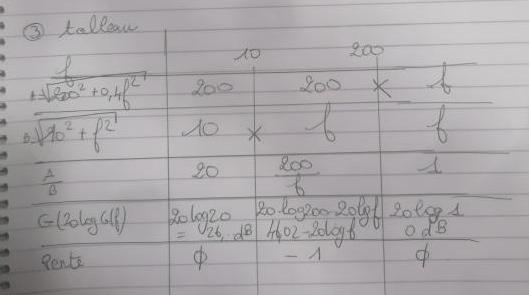 ③ tableau
f 10 200
A √200² + 0,4f² 200 200 × f
B √10² + f² 10 × f f
A/B 20 200/f 1
G(20logG(f)) 20log20 = 26, dB 20log200-20logf 4602-20logf 20log1 0dB
Pente ϕ -1 ϕ